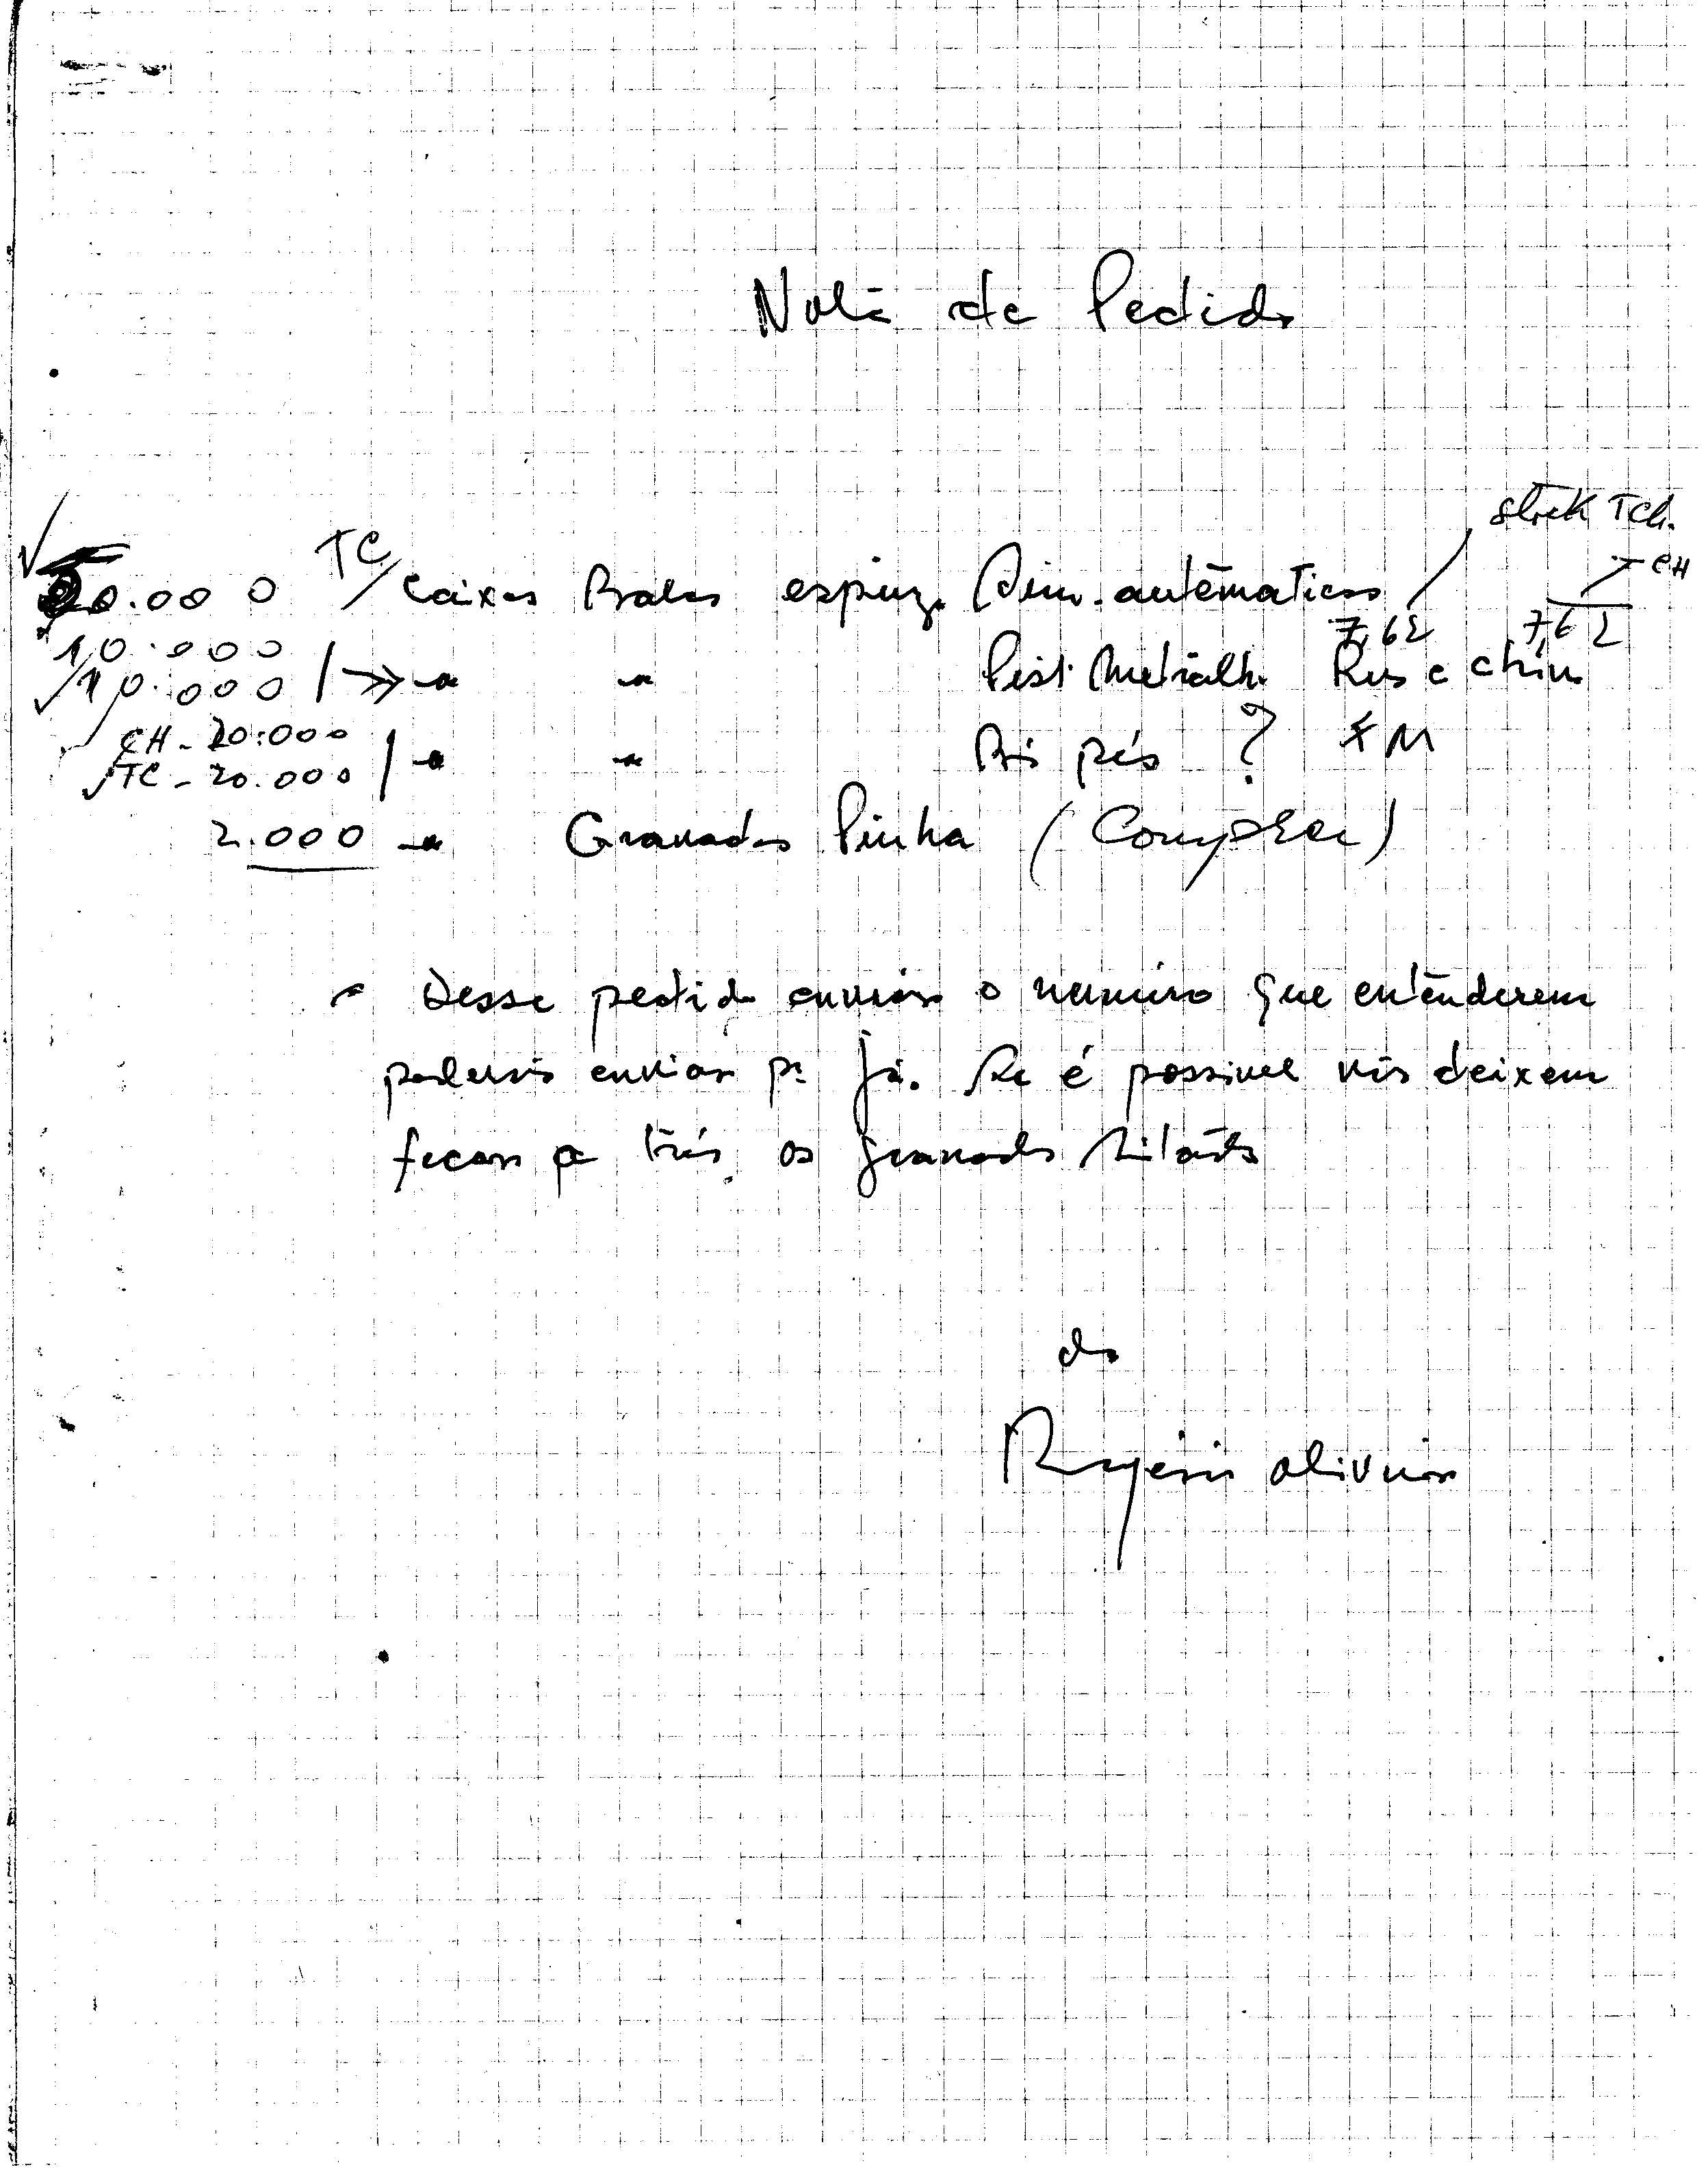 Nota de Pedido
stock TCh.
CH
50.000 TC/ Caixas Balas esping. Sem. automaticas /
7,62 7,62
10.000
10.000 / " " Pist. Metralh. Rus e chin
CH - 20.000
TC - 20.000 / " " Bi pés ? FM
2.000 " Granadas Pinha (Completa)
Desse pedido enviar o numero que entenderem
poderem enviar pa já. Se é possivel nós deixem
ficar pa trás as granadas
do
Rogério oliveira